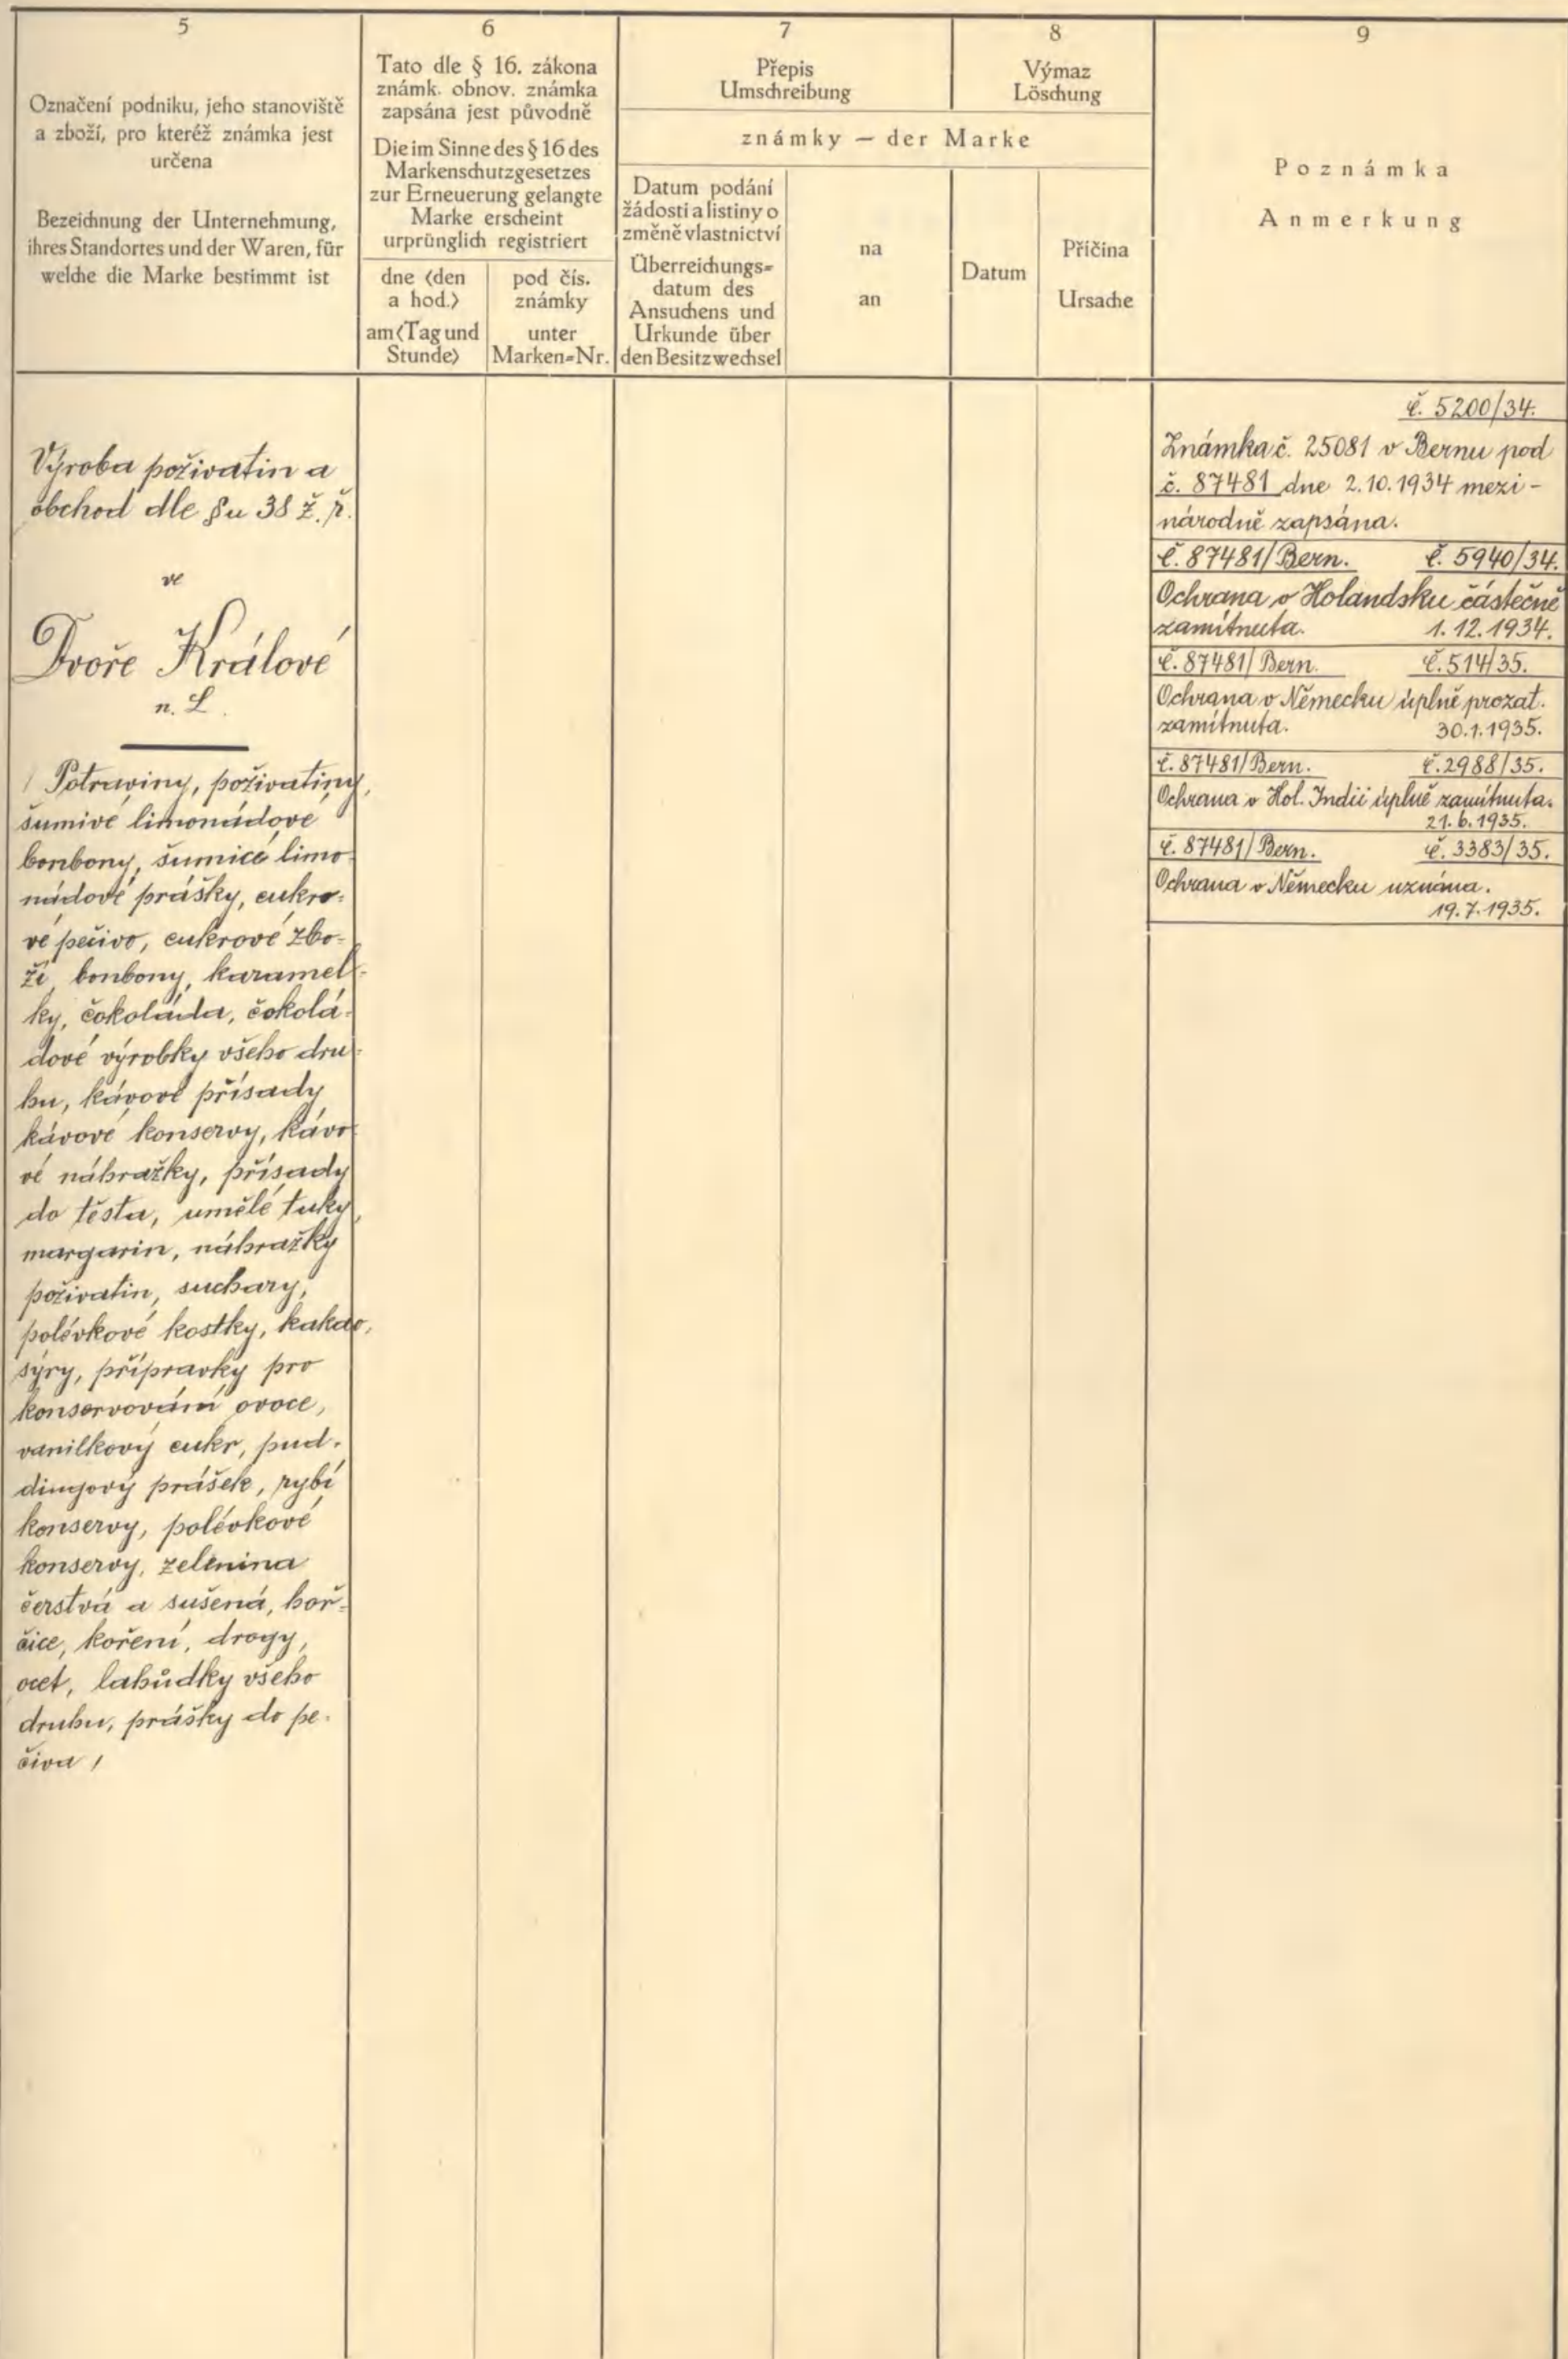 5
Označení podniku, jeho stanoviště
a zboží, pro kteréž známka jest
určena
Bezeichnung der Unternehmung,
ihres Standortes und der Waren, für
welche die Marke bestimmt ist
6
Tato dle § 16. zákona
známk. obnov. známka
zapsána jest původně
Die im Sinne des § 16 des
Markenschutzgesetzes
zur Erneuerung gelangte
Marke erscheint
urprünglich registriert
dne (den
a hod.)
am (Tag und
Stunde)
pod čís.
známky
unter
Marken=Nr.
7
Přepis
Umschreibung
8
Výmaz
Löschung
známky — der Marke
Datum podání
žádosti a listiny o
změně vlastnictví
Überreichungs=
datum des
Ansuchens und
Urkunde über
den Besitzwechsel
na
an
Datum
Příčina
Ursache
9
Poznámka
Anmerkung
Výroba poživatin a
obchod dle §u 38 ž. ř.
ve
Dvoře Králové
n. L.
/ Potraviny, poživatiny,
šumivé limonádové
bonbony, šumicé limo-
nádové prášky, cukro-
vé pečivo, cukrové zbo-
ží, bonbony, karamel-
ky, čokoláda, čokolá-
dové výrobky všeho dru-
hu, kávové přísady
kávové konservy, kávo-
vé náhražky, přísady
do těsta, umělé tuky,
margarin, náhražky
poživatin, suchary,
polévkové kostky, kakao,
sýry, přípravky pro
konservování ovoce,
vanilkový cukr, pud-
dingový prášek, rybí
konservy, polévkové
konservy, zelenina
čerstvá a sušená, hoř-
čice, koření, drogy,
ocet, lahůdky všeho
druhu, prášky do pe-
čiva /
č. 5200/34.
Známka č. 25081 v Bernu pod
č. 87481 dne 2.10.1934 mezi-
národně zapsána.
č. 87481/Bern. č. 5940/34.
Ochrana v Holandsku částečně
zamítnuta. 1. 12. 1934.
č. 87481/Bern. č. 514/35.
Ochrana v Německu úplně prozat.
zamítnuta. 30.1.1935.
č. 87481/Bern. č. 2988/35.
Ochrana v Hol. Indii úplně zamítnuta.
21. 6. 1935.
č. 87481/Bern. č. 3383/35.
Ochrana v Německu uznána.
19. 7. 1935.